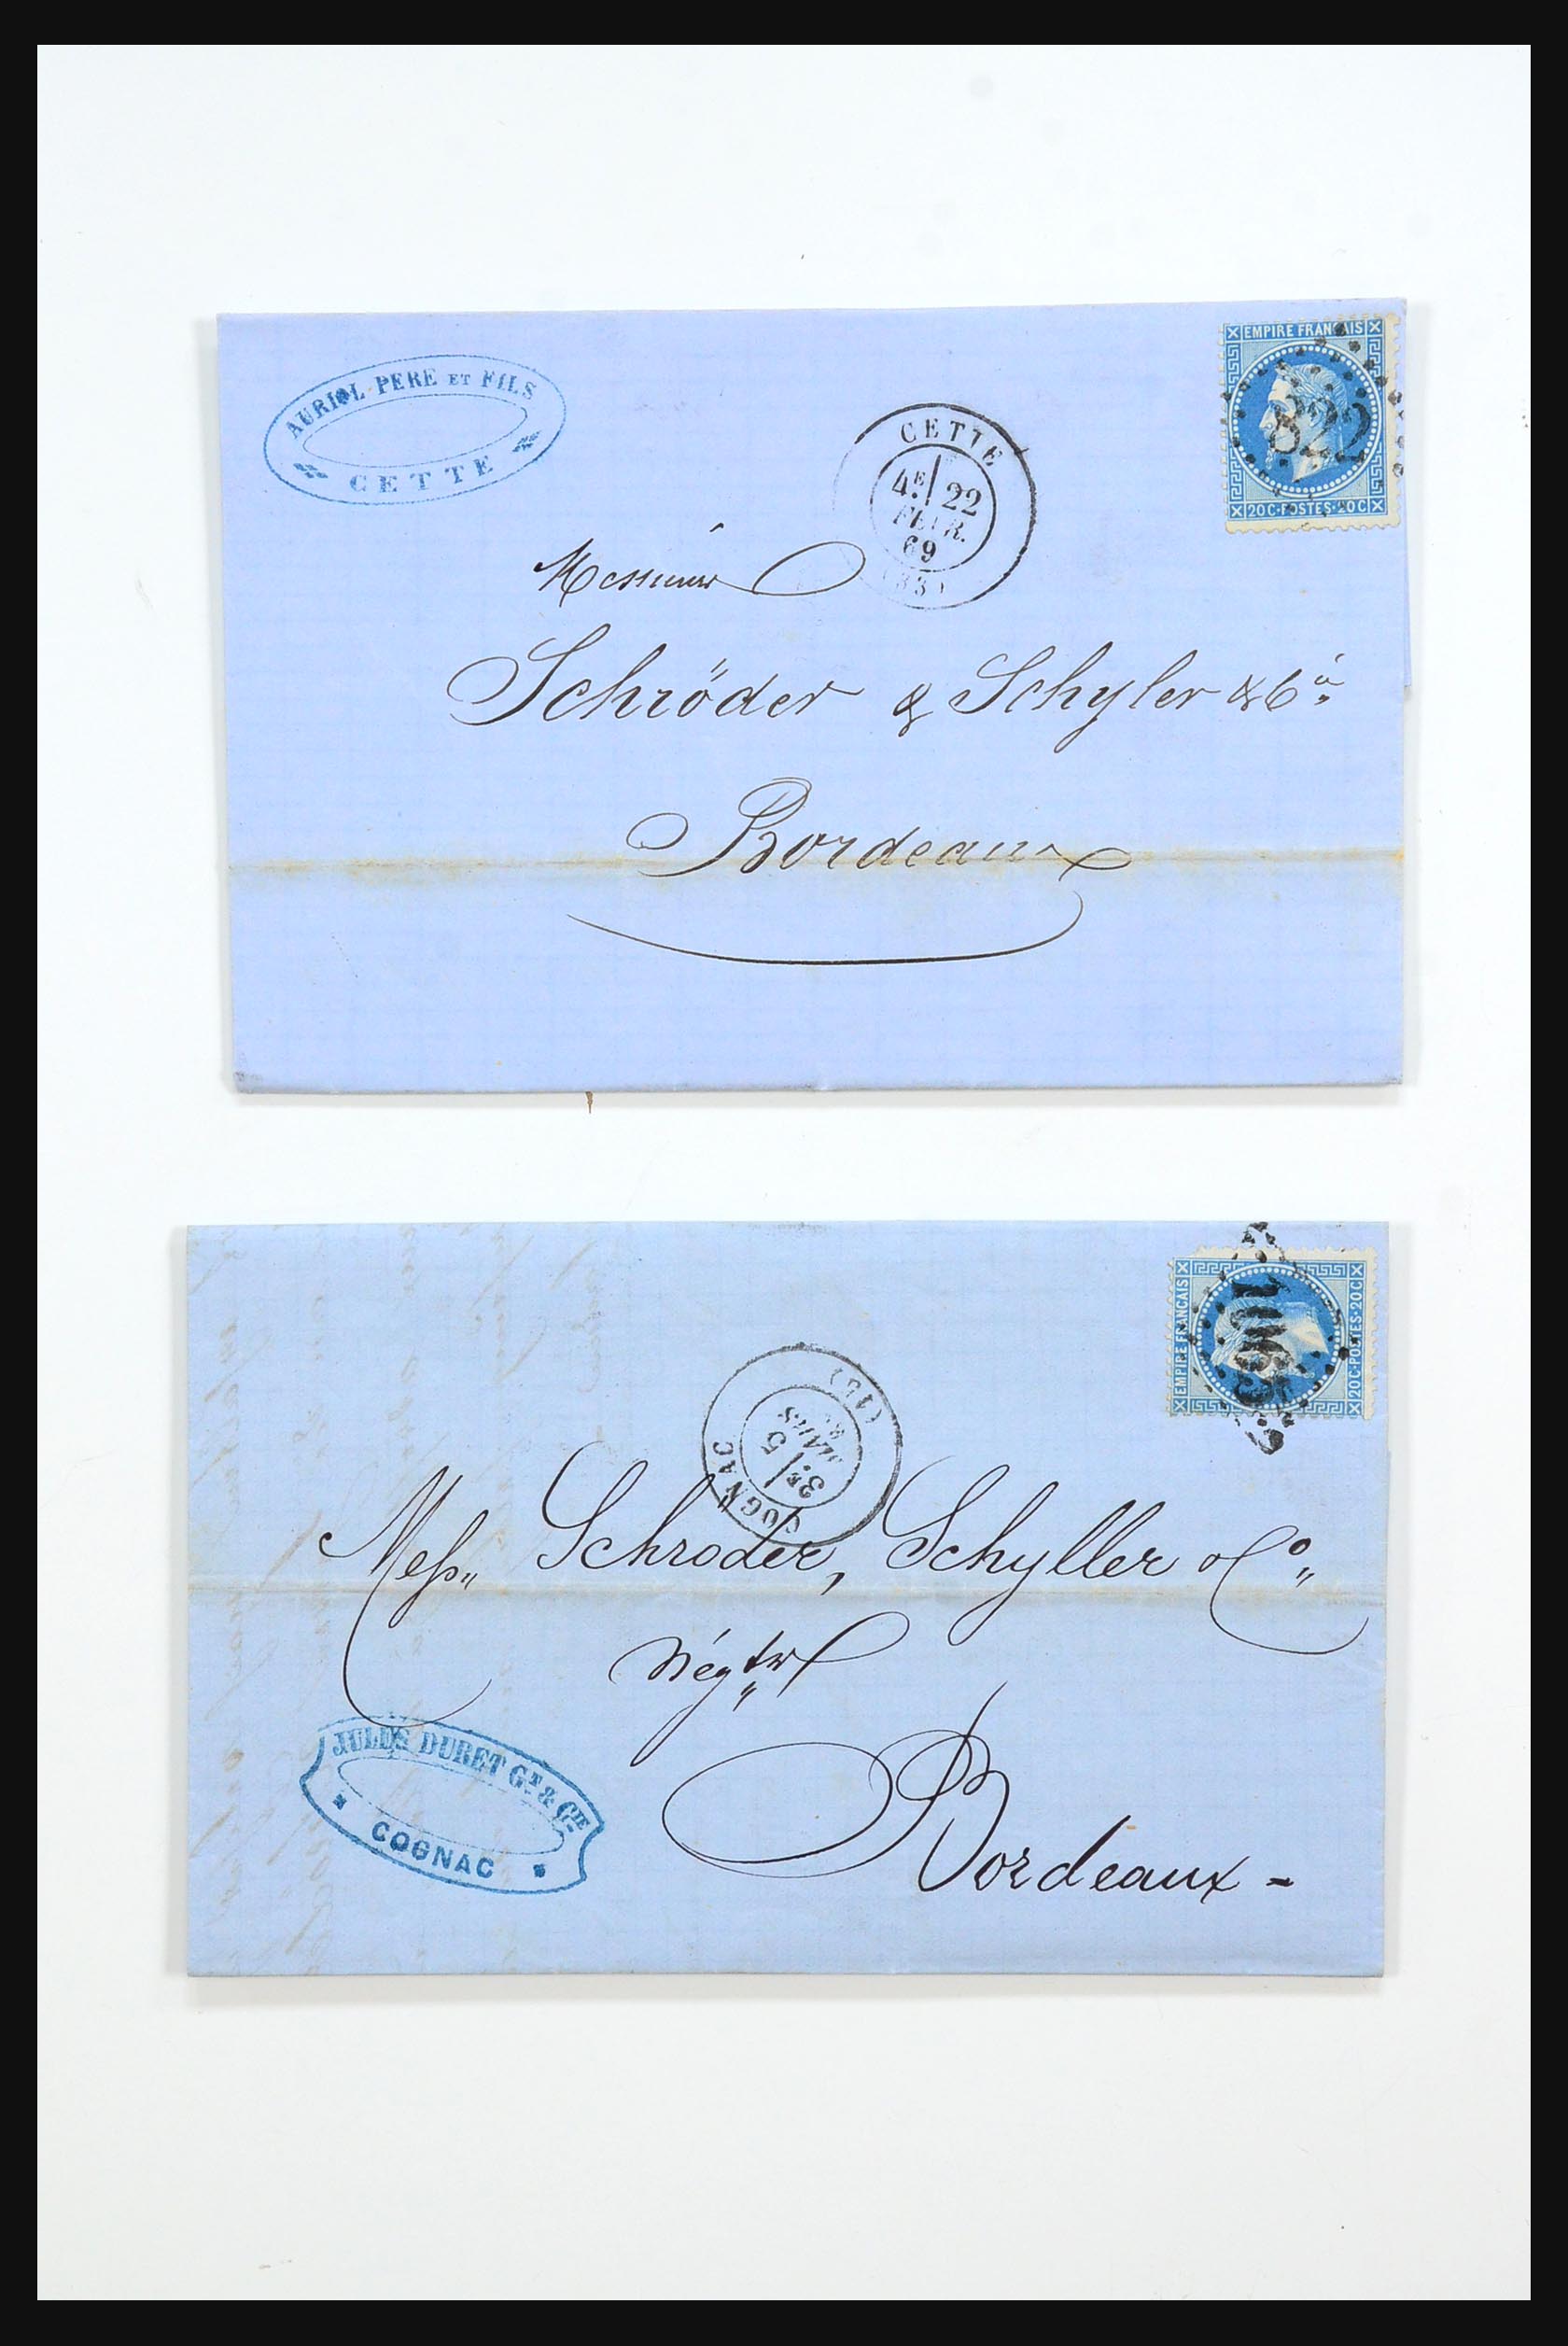 AURIOL PERE ET FILS
CETTE
CETTE
4E 22
FEVR.
69
(33)
EMPIRE FRANCAIS
822
20C·POSTES·20C
Messieurs
Schröder & Schyler & Cie
Bordeaux
EMPIRE FRANCAIS
20C·POSTES·20C
COGNAC
3E 5
MARS
(15)
Mess. Schroder, Schyller & Co.
Négts
JULES DURET GT & CIE
COGNAC
Bordeaux -